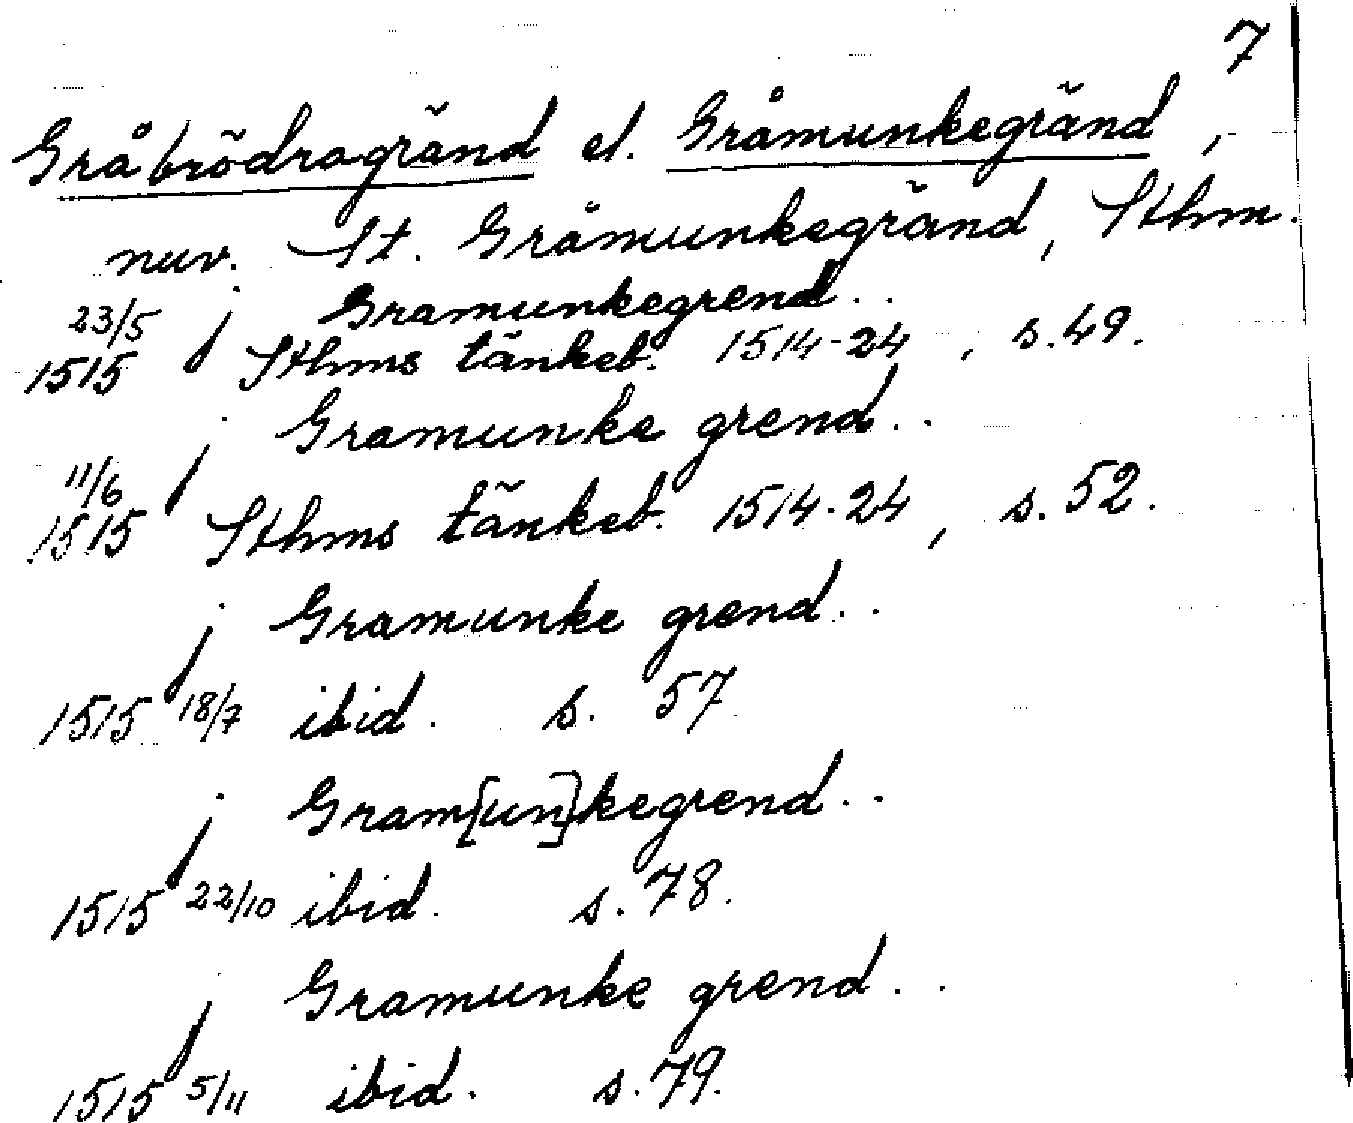 7
Gråbrödragränd el. Gråmunkegränd,
nuv. St. Gråmunkegränd, Sthm.
23/5 j Gramunkegrend..
1515 Sthms tänkeb. 1514-24, s. 49.
j Gramunke grend..
11/6
1515 Sthms tänkeb. 1514-24, s. 52.
j Gramunke grend..
1515 18/7 ibid. s. 57
j Gram[un]kegrend..
1515 22/10 ibid. s. 78.
j Gramunke grend..
1515 5/11 ibid. s. 79.